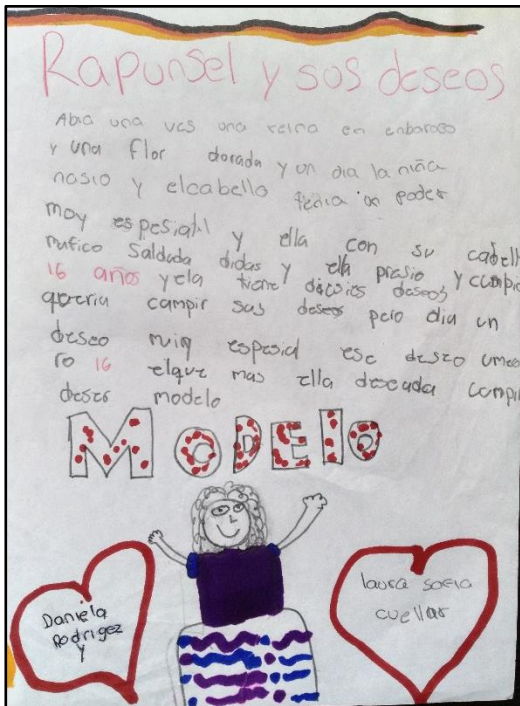 Rapunsel y sus deseos
Abia una ves una reina en enbaroso
y una flor dorada y un dia la niña
nasio y elcabello tenia un poder
moy espesiahl y ella con su cabell
16 años y ela tiene deseos
queria campir sus deseos pero dia un
deseo muiy espesial ese deseo umeo
ro 16 elque mas ella deseada campir
deser modelo
MODElo
Daniela
Rodrigez
y
laura sofia
cuellar